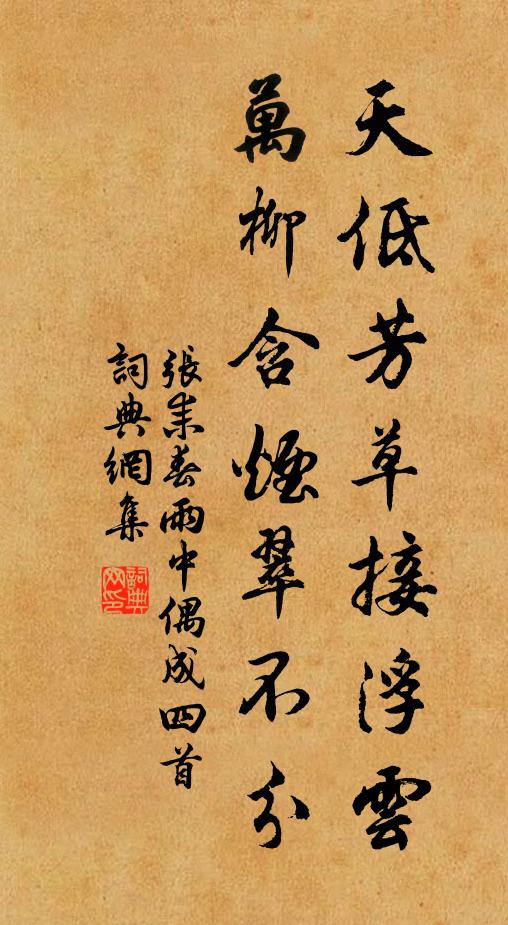 天低芳草接浮雲
萬柳含煙翠不分
張耒春雨中偶成四首
詞典網集
詞典网印